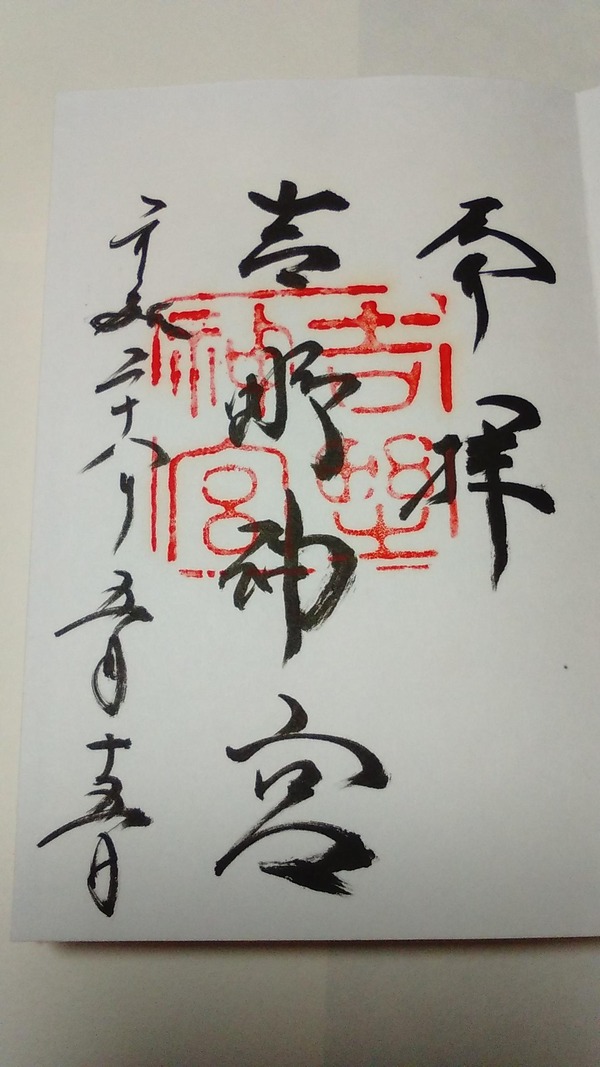 奉拝
吉野神宮
平成二十八年五月十五日
吉野神宮